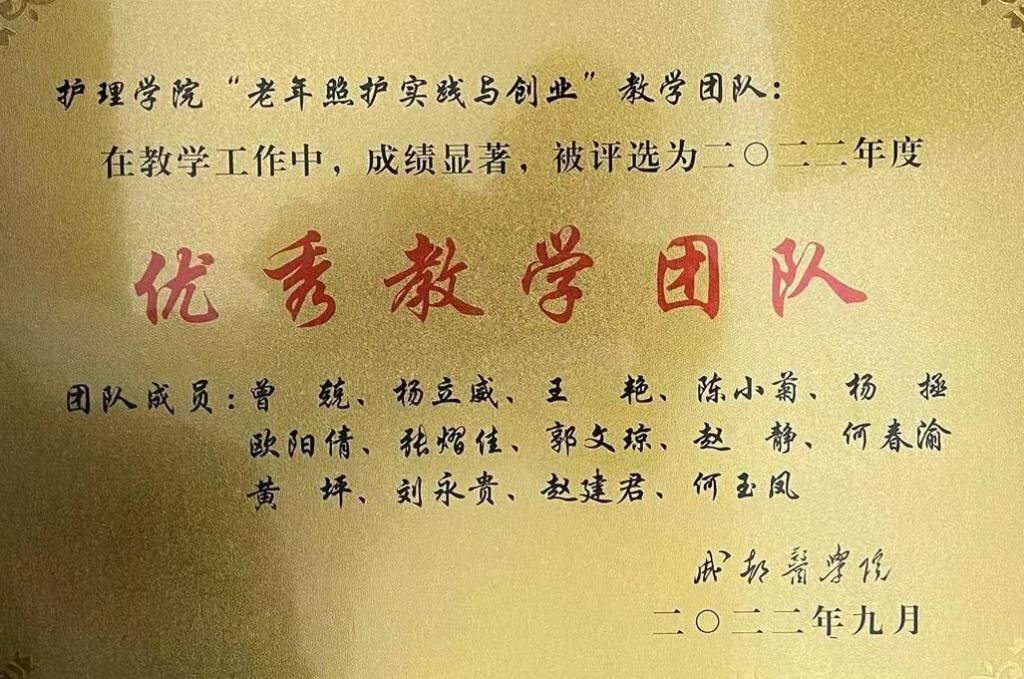 护理学院“老年照护实践与创业”教学团队：
在教学工作中，成绩显著，被评选为二〇二二年度
优秀教学团队
团队成员：曾 兢、杨立威、王 艳、陈小菊、杨 拯
欧阳倩、张熠佳、郭文琼、赵 静、何春渝
黄 坪、刘永贵、赵建君、何玉凤
成都醫學院
二〇二二年九月